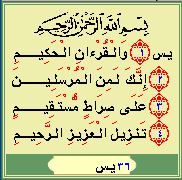 بِسْمِ اللَّهِ الرَّحْمَٰنِ الرَّحِيمِ
يس ١ وَالْقُرْءَانِ الْحَكِيمِ
٢ إِنَّكَ لَمِنَ الْمُرْسَلِينَ
٣ عَلَى صِرَاطٍ مُّسْتَقِيمٍ
٤ تَنزِيلَ الْعَزِيزِ الرَّحِيمِ
٣٦ يس